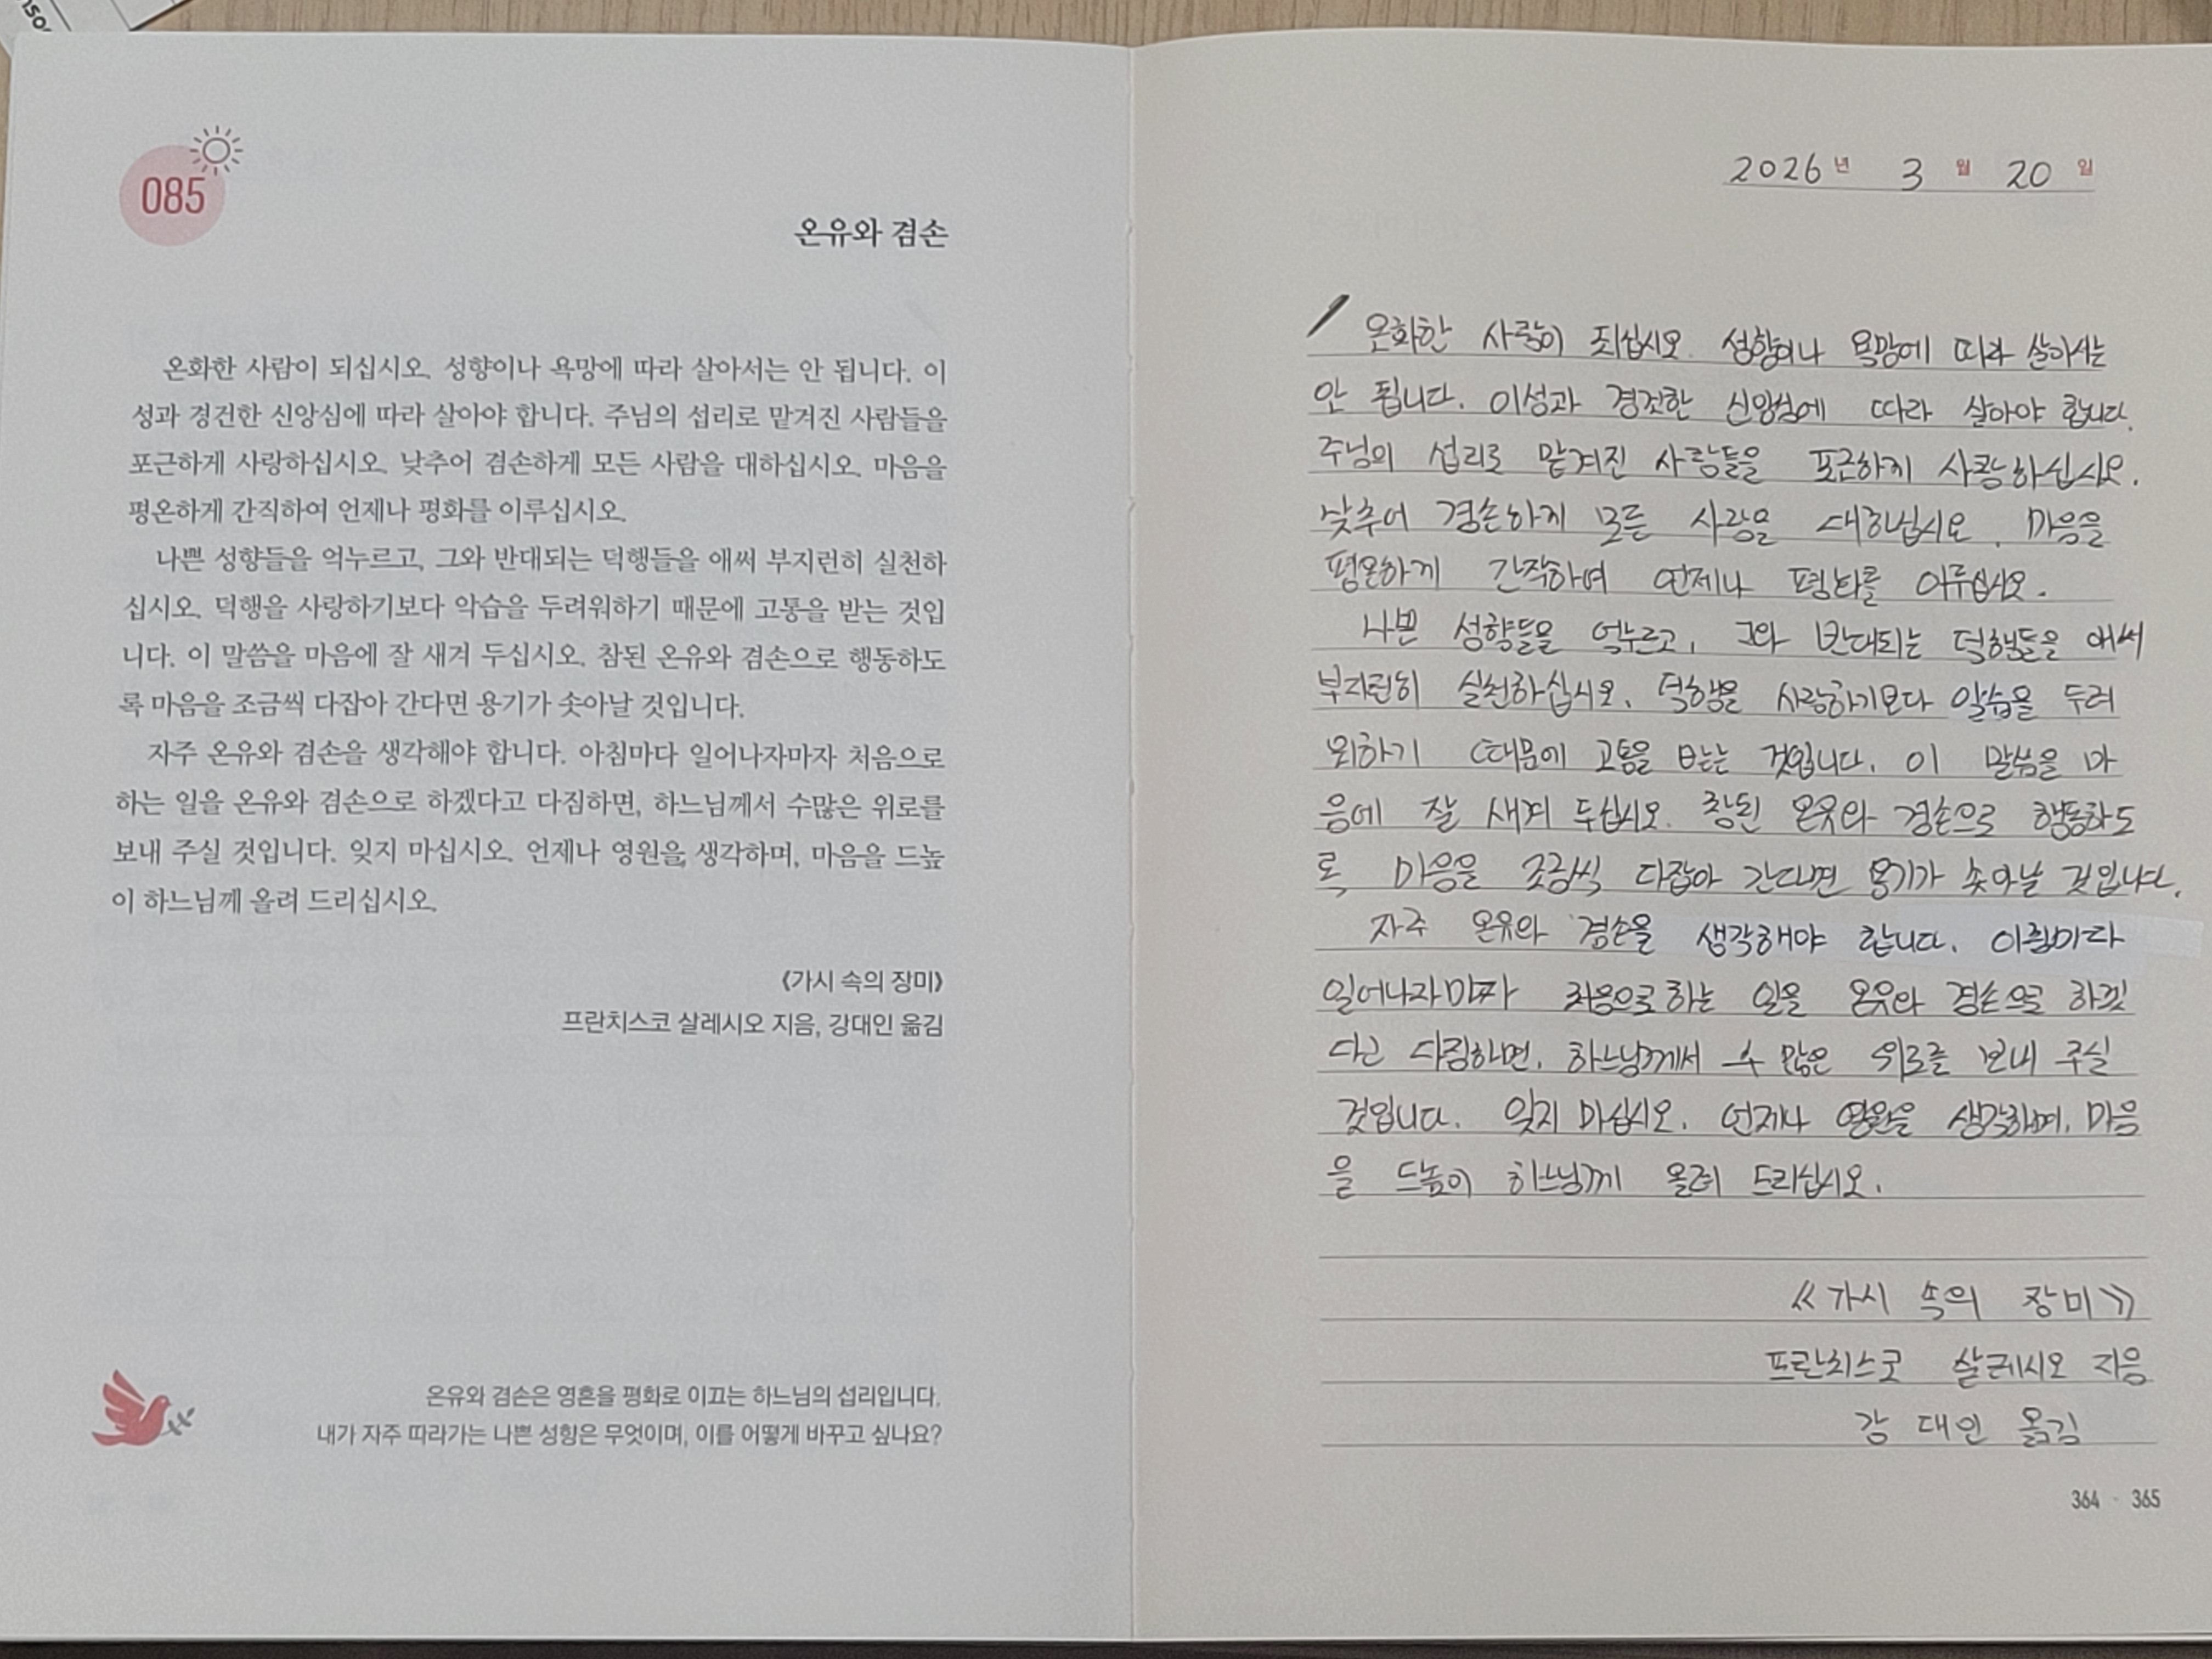 085
온유와 겸손
온화한 사람이 되십시오. 성향이나 욕망에 따라 살아서는 안 됩니다. 이
성과 경건한 신앙심에 따라 살아야 합니다. 주님의 섭리로 맡겨진 사람들을
포근하게 사랑하십시오. 낮추어 겸손하게 모든 사람을 대하십시오. 마음을
평온하게 간직하여 언제나 평화를 이루십시오.
나쁜 성향들을 억누르고, 그와 반대되는 덕행들을 애써 부지런히 실천하
십시오. 덕행을 사랑하기보다 악습을 두려워하기 때문에 고통을 받는 것입
니다. 이 말씀을 마음에 잘 새겨 두십시오. 참된 온유와 겸손으로 행동하도
록 마음을 조금씩 다잡아 간다면 용기가 솟아날 것입니다.
자주 온유와 겸손을 생각해야 합니다. 아침마다 일어나자마자 처음으로
하는 일을 온유와 겸손으로 하겠다고 다짐하면, 하느님께서 수많은 위로를
보내 주실 것입니다. 잊지 마십시오. 언제나 영원을 생각하며, 마음을 드높
이 하느님께 올려 드리십시오.
《가시 속의 장미》
프란치스코 살레시오 지음, 강대인 옮김
온유와 겸손은 영혼을 평화로 이끄는 하느님의 섭리입니다.
내가 자주 따라가는 나쁜 성향은 무엇이며, 이를 어떻게 바꾸고 싶나요?
2026년 3월 20일
온화한 사람이 되십시오. 성향이나 욕망에 따라 살아서는
안 됩니다. 이성과 경건한 신앙심에 따라 살아야 합니다.
주님의 섭리로 맡겨진 사람들을 포근하게 사랑하십시오.
낮추어 겸손하게 모든 사람을 대하십시오. 마음을
평온하게 간직하여 언제나 평화를 이루십시오.
나쁜 성향들을 억누르고, 그와 반대되는 덕행들을 애써
부지런히 실천하십시오. 덕행을 사랑하기보다 악습을 두려
워하기 때문에 고통을 받는 것입니다. 이 말씀을 마
음에 잘 새겨 두십시오. 참된 온유와 겸손으로 행동하도
록 마음을 조금씩 다잡아 간다면 용기가 솟아날 것입니다.
자주 온유와 겸손을 생각해야 합니다. 아침마다
일어나자마자 처음으로 하는 일을 온유와 겸손으로 하겠
다고 다짐하면, 하느님께서 수 많은 위로를 보내 주실
것입니다. 잊지 마십시오. 언제나 영원을 생각하며, 마음
을 드높이 하느님께 올려 드리십시오.
《가시 속의 장미》
프란치스코 살레시오 지음
강 대인 옮김
364 · 365